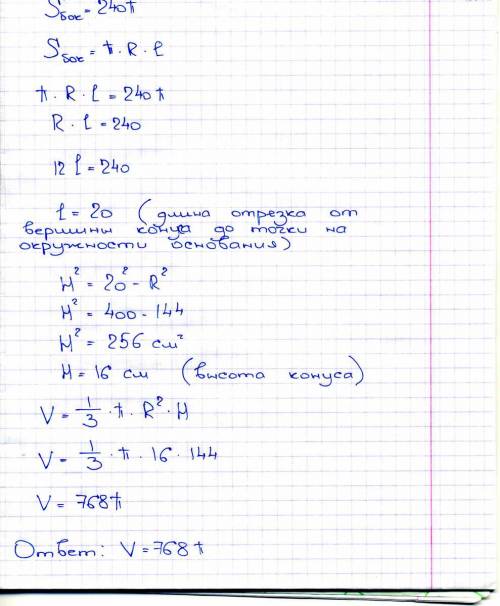 Sбок = 240π
Sбок = π · R · ℓ
π · R · ℓ = 240π
R · ℓ = 240
12 ℓ = 240
ℓ = 20 (длина отрезка от
вершины конуса до точки на
окружности основания)
H² = 20² - R²
H² = 400 - 144
H² = 256 см²
H = 16 см (высота конуса)
V = 1/3 · π · R² · H
V = 1/3 · π · 16 · 144
V = 768π
Ответ: V = 768π